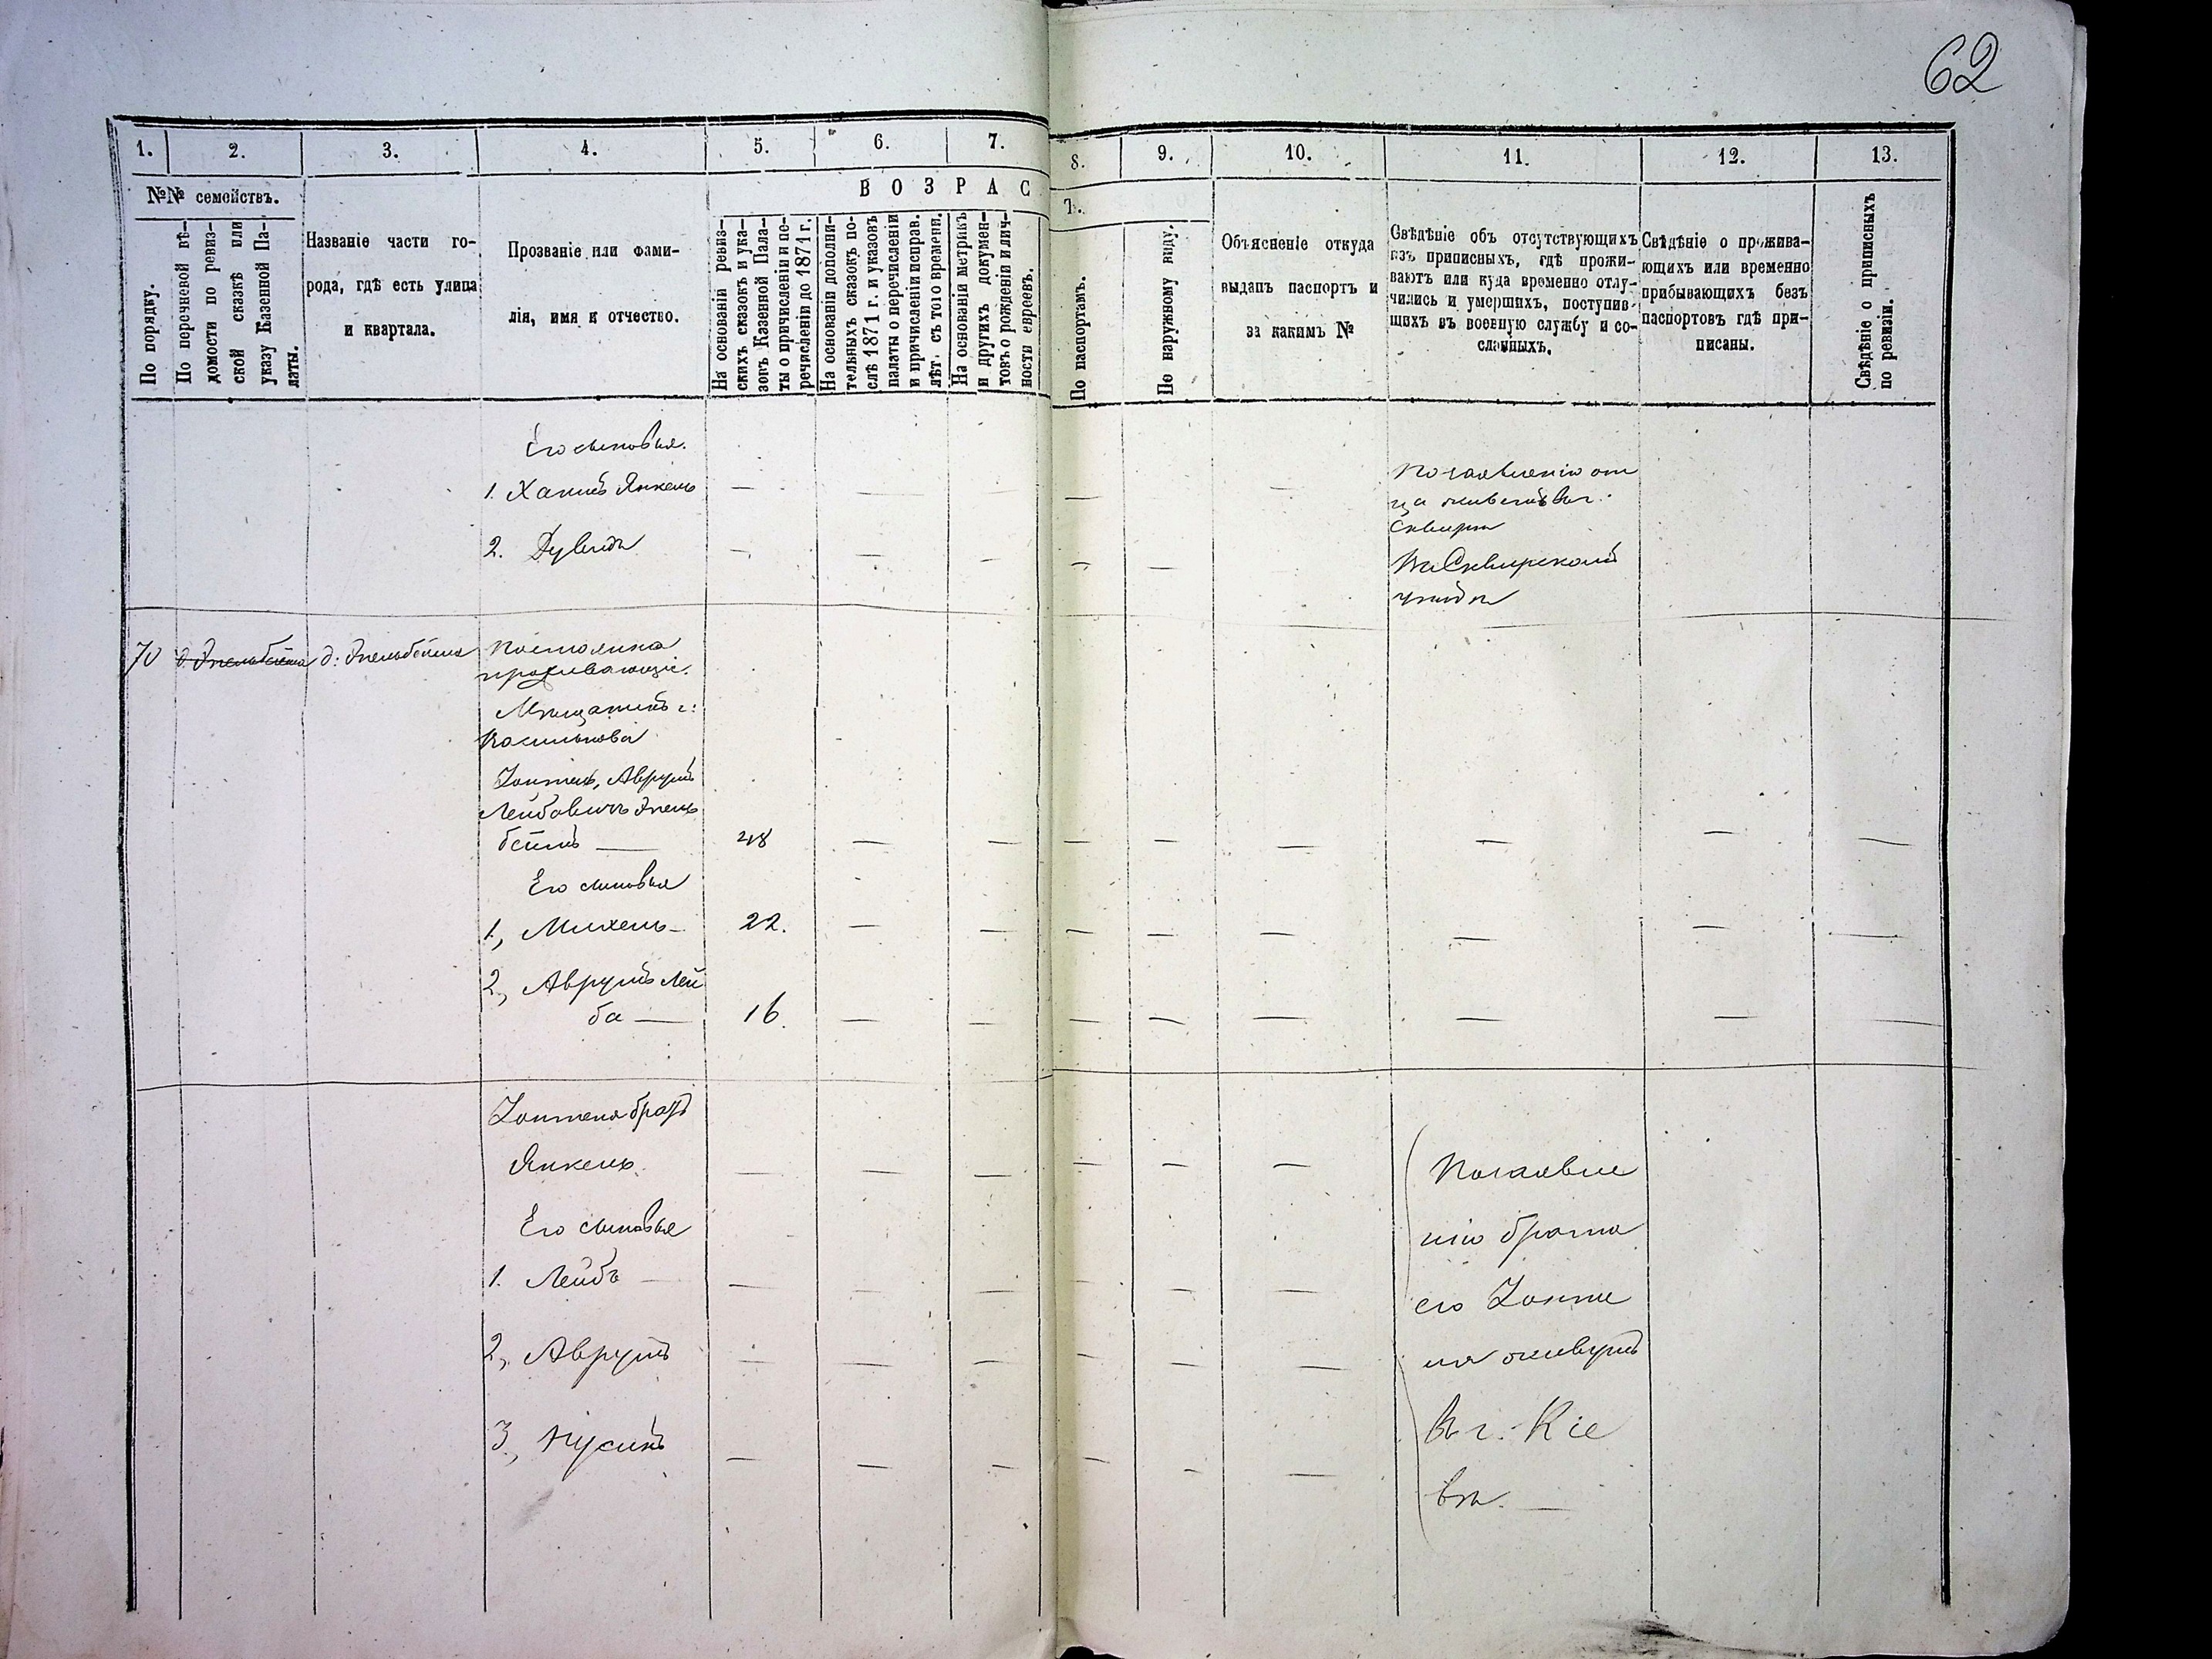 62
1. 2. 3. 4. 5. 6. 7. 8. 9. 10. 11. 12. 13.
№№ семействъ.
По порядку.
По перечневой вѣ-
домости по ревиз-
ской сказкѣ или
указу Казенной Па-
латы.
Названіе части го-
рода, гдѣ есть улица
и квартала.
Прозваніе или фами-
лія, имя и отчество.
ВОЗРАС
Т.
На основаніи ревиз-
скихъ сказокъ и ука-
зовъ Казенной Пала-
ты о причисленіи и пе-
речисленіи до 1871 г.
На основаніи дополни-
тельныхъ сказокъ по-
слѣ 1871 г. и указовъ
палаты о перечисленіи
и причисленіи исправ.
лѣт. съ того времени.
На основаніи метрикъ
и другихъ докумен-
товъ о рожденіи и лич-
ности евреевъ.
По паспортамъ.
По наружному виду.
Объясненіе откуда
выданъ паспортъ и
за какимъ №
Свѣдѣніе объ отсутствующихъ
изъ приписныхъ, гдѣ прожи-
ваютъ или куда временно отлу-
чились и умершихъ, поступив-
шихъ въ военную службу и со-
сланныхъ.
Свѣдѣніе о прожива-
ющихъ или временно
прибывающихъ безъ
паспортовъ гдѣ при-
писаны.
Свѣдѣніе о приписныхъ
по ревизіи.
Его сыновья.
1. Хаимъ Янкель — — — — —
По заявленію от
ца живетъ въ г.
Сквирѣ
2. Дувидъ — — — — — —
Въ Сквирскомъ
уѣздѣ
70 д: Эпельбейма д: Эпельбейма
Постоянно
проживающіе.
Мѣщанинъ г:
Василькова
Зойтель, Аврумъ
Лейбовичъ Эпель
беймъ — 48 — — — — — — — —
Его сыновья
1, Михель — 22. — — — — — — — —
2, Аврумъ Лей
ба — 16. — — — — — — — —
Зойтеля братъ
Янкель — — — — — —
Его сыновья
1. Лейбъ — — — — — —
2, Аврумъ — — — — — —
3, Нусинъ — — — — — —
По заявле
нію брата
его Зойте
ля живутъ
въ г. Кіе
вѣ. —